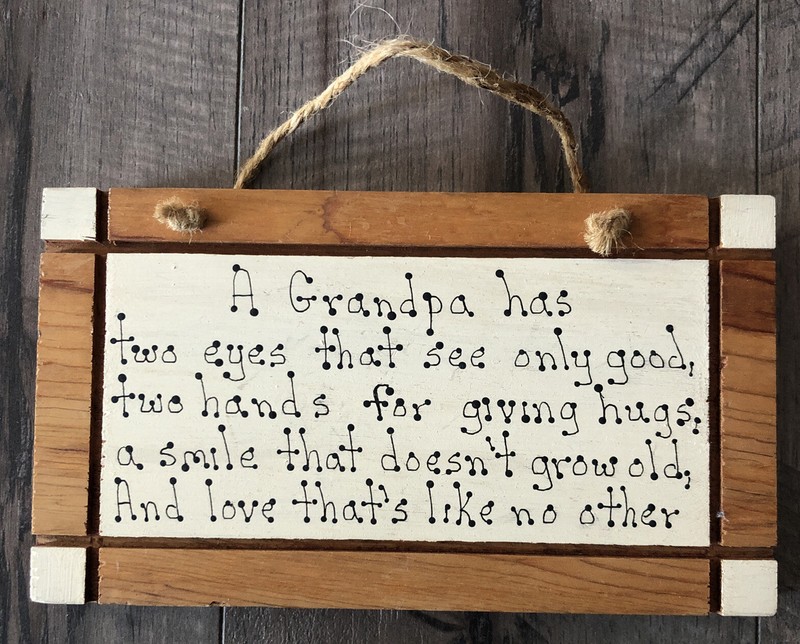 A Grandpa has
two eyes that see only good,
two hands for giving hugs;
a smile that doesn't grow old;
And love that's like no other